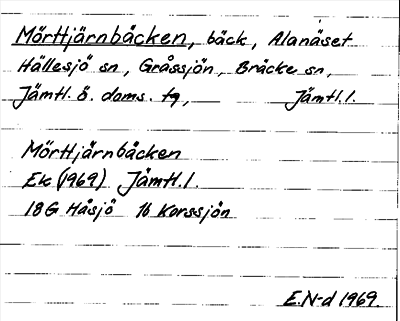 Mörttjärnbäcken, bäck, Alanäset
Hällesjö sn, Gråssjön, Bräcke sn,
Jämtl. ö. doms. tg, Jämtl.l.
Mörttjärnbäcken
Ek (1969) Jämtl.l.
18G Håsjö 1b Korssjön
E.N-d 1969.